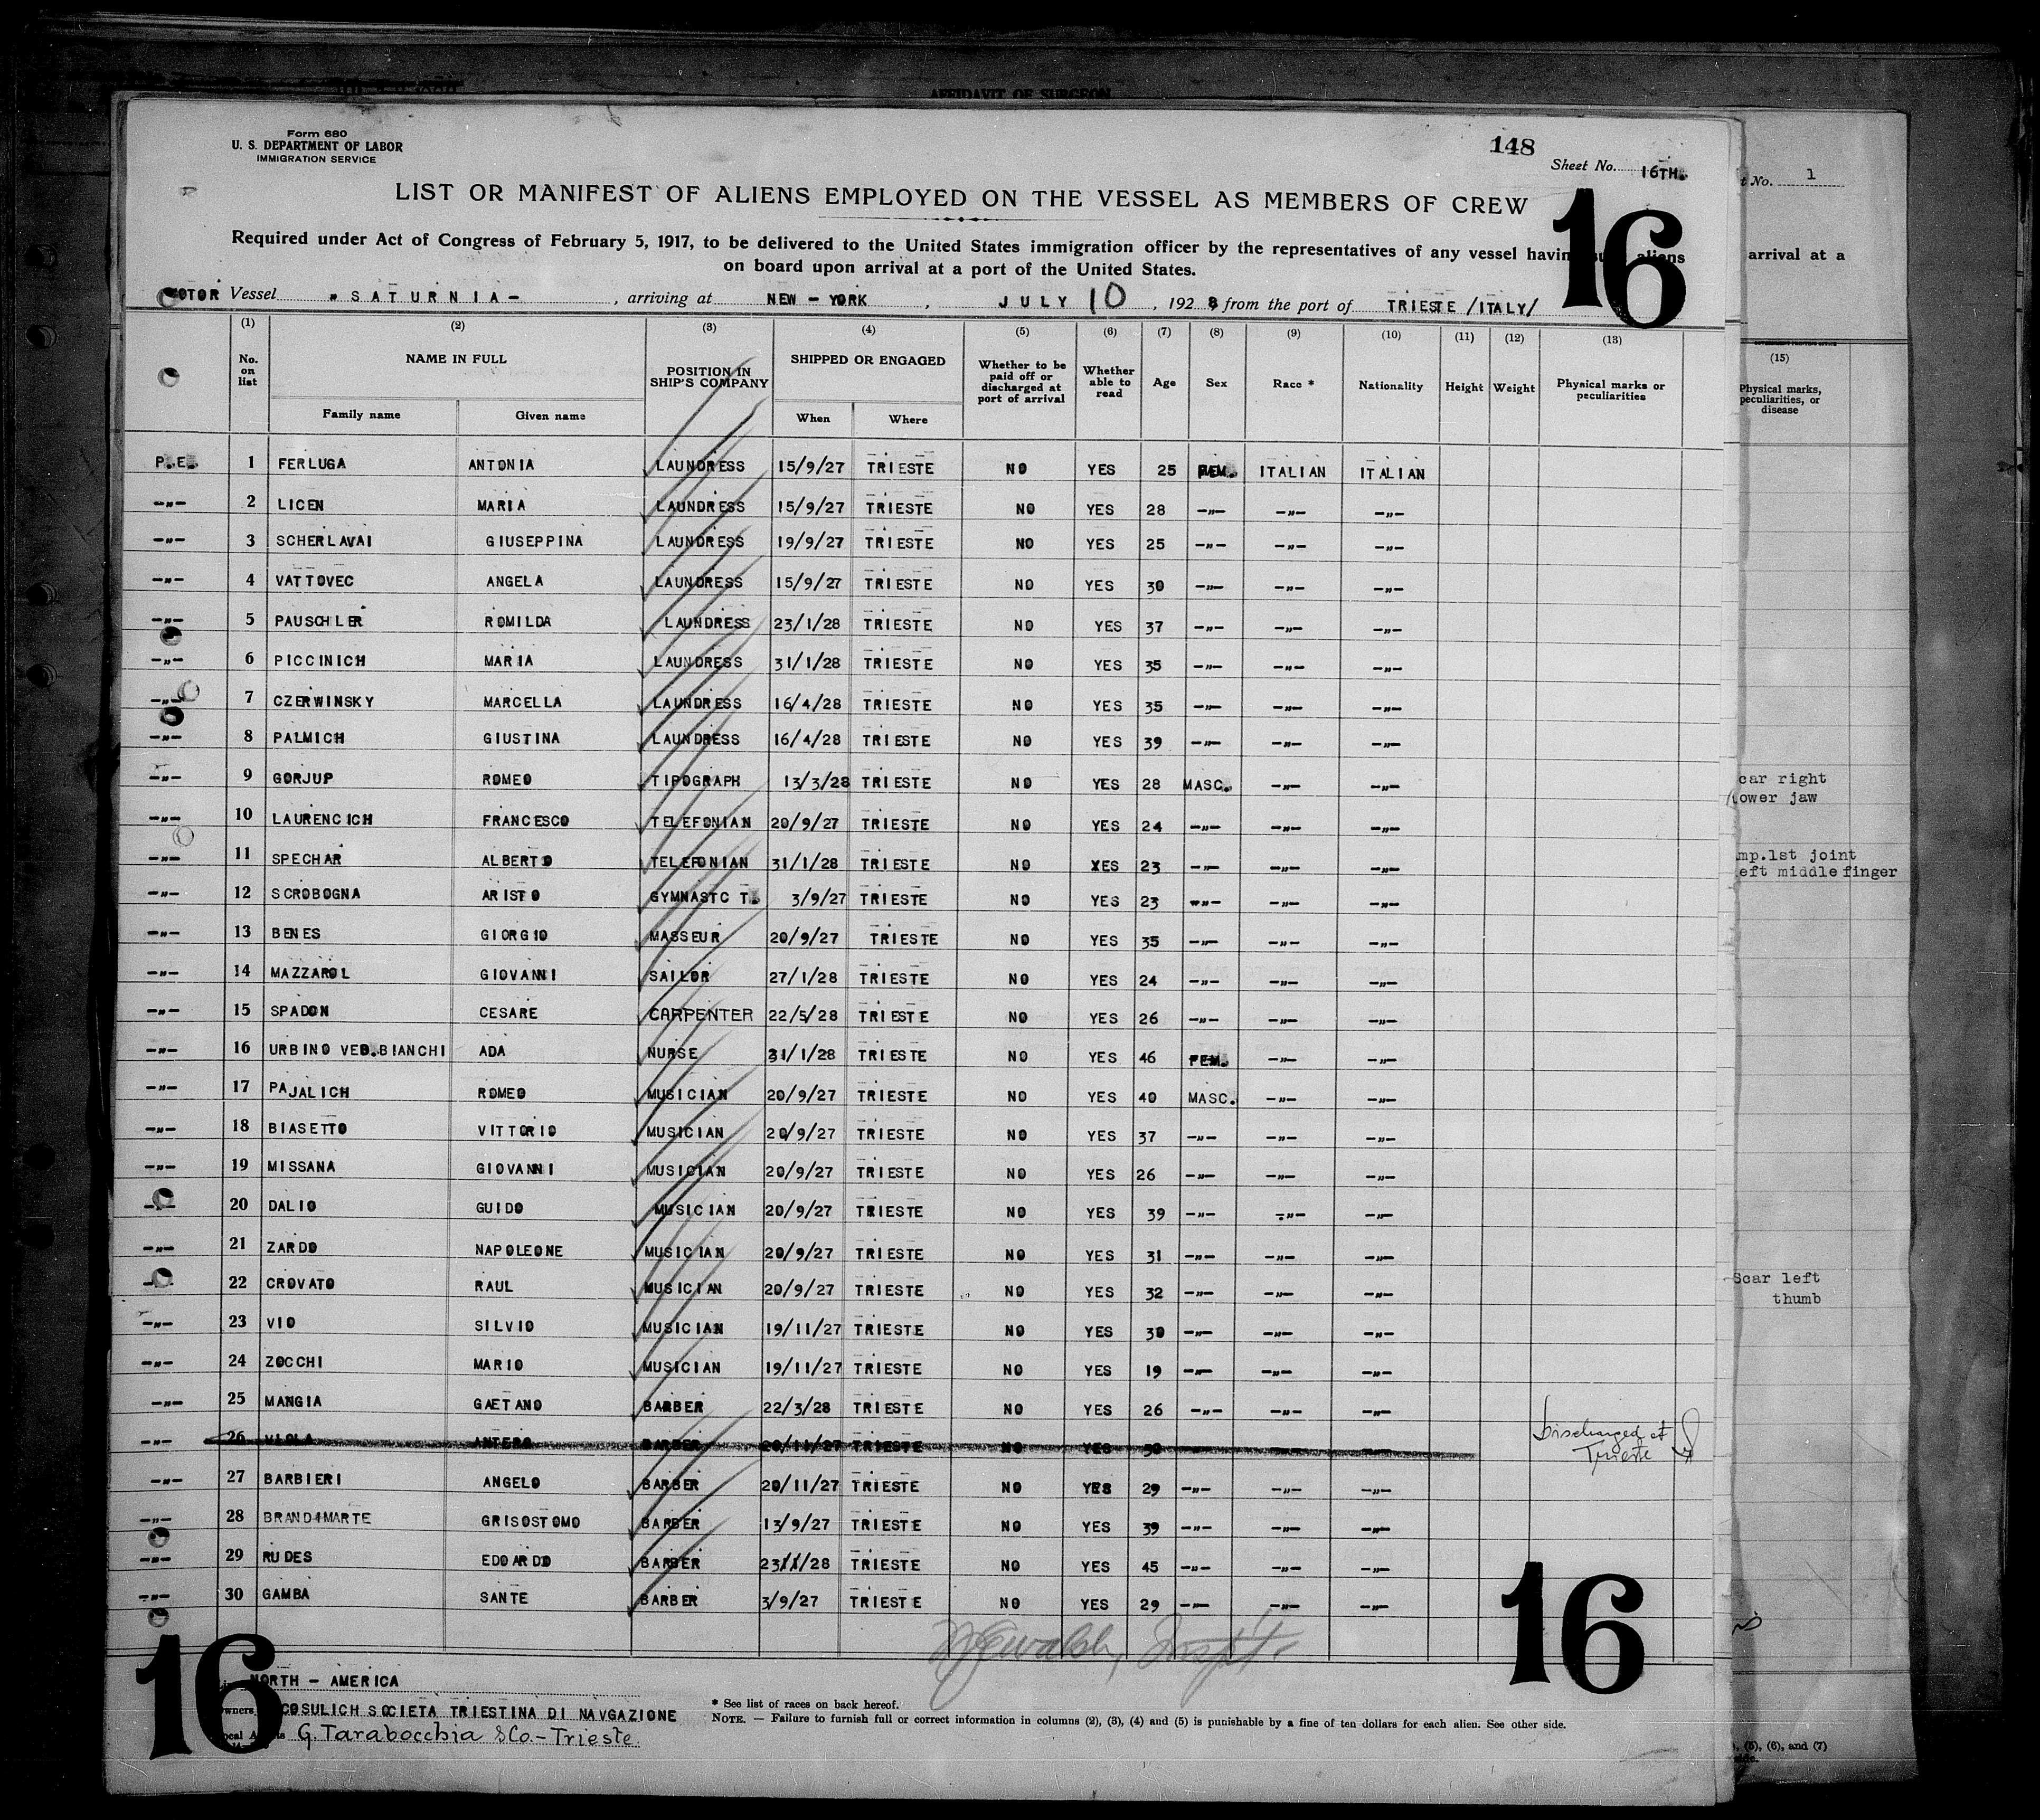 AFFIDAVIT OF SURGEON
Form 680
U. S. DEPARTMENT OF LABOR
IMMIGRATION SERVICE
148
Sheet No. 16TH.
LIST OR MANIFEST OF ALIENS EMPLOYED ON THE VESSEL AS MEMBERS OF CREW
16
Required under Act of Congress of February 5, 1917, to be delivered to the United States immigration officer by the representatives of any vessel having such aliens
on board upon arrival at a port of the United States.
MOTOR Vessel - SATURNIA - , arriving at NEW - YORK , JULY 10 , 1928 from the port of TRIESTE /ITALY/
(1) (2) (3) (4) (5) (6) (7) (8) (9) (10) (11) (12) (13)
No. on list NAME IN FULL Family name Given name POSITION IN SHIP'S COMPANY SHIPPED OR ENGAGED When Where Whether to be paid off or discharged at port of arrival Whether able to read Age Sex Race * Nationality Height Weight Physical marks or peculiarities
P.E. 1 FERLUGA ANTONIA LAUNDRESS 15/9/27 TRIESTE NO YES 25 FEM. ITALIAN ITALIAN
-"- 2 LICEN MARIA LAUNDRESS 15/9/27 TRIESTE NO YES 28 -"- -"- -"-
-"- 3 SCHERLAVAI GIUSEPPINA LAUNDRESS 19/9/27 TRIESTE NO YES 25 -"- -"- -"-
-"- 4 VATTOVEC ANGELA LAUNDRESS 15/9/27 TRIESTE NO YES 30 -"- -"- -"-
-"- 5 PAUSCHLER ROMILDA LAUNDRESS 23/1/28 TRIESTE NO YES 37 -"- -"- -"-
-"- 6 PICCINICH MARIA LAUNDRESS 31/1/28 TRIESTE NO YES 35 -"- -"- -"-
-"- 7 CZERWINSKY MARCELLA LAUNDRESS 16/4/28 TRIESTE NO YES 35 -"- -"- -"-
-"- 8 PALMICH GIUSTINA LAUNDRESS 16/4/28 TRIESTE NO YES 39 -"- -"- -"-
-"- 9 GORJUP ROMEO TIPOGRAPH 13/3/28 TRIESTE NO YES 28 MASC. -"- -"-
-"- 10 LAURENCICH FRANCESCO TELEFONIAN 20/9/27 TRIESTE NO YES 24 -"- -"- -"-
-"- 11 SPECHAR ALBERTO TELEFONIAN 31/1/28 TRIESTE NO YES 23 -"- -"- -"-
-"- 12 SCROBOGNA ARISTO GYMNASTC T. 3/9/27 TRIESTE NO YES 23 -"- -"- -"-
-"- 13 BENES GIORGIO MASSEUR 20/9/27 TRIESTE NO YES 35 -"- -"- -"-
-"- 14 MAZZAROL GIOVANNI SAILOR 27/1/28 TRIESTE NO YES 24 -"- -"- -"-
-"- 15 SPADON CESARE CARPENTER 22/5/28 TRIESTE NO YES 26 -"- -"- -"-
-"- 16 URBINO VED.BIANCHI ADA NURSE 31/1/28 TRIESTE NO YES 46 FEM. -"- -"-
-"- 17 PAJALICH ROMEO MUSICIAN 20/9/27 TRIESTE NO YES 40 MASC. -"- -"-
-"- 18 BIASETTO VITTORIO MUSICIAN 20/9/27 TRIESTE NO YES 37 -"- -"- -"-
-"- 19 MISSANA GIOVANNI MUSICIAN 20/9/27 TRIESTE NO YES 26 -"- -"- -"-
-"- 20 DALIO GUIDO MUSICIAN 20/9/27 TRIESTE NO YES 39 -"- -"- -"-
-"- 21 ZARDO NAPOLEONE MUSICIAN 20/9/27 TRIESTE NO YES 31 -"- -"- -"-
-"- 22 CROVATO RAUL MUSICIAN 20/9/27 TRIESTE NO YES 32 -"- -"- -"-
-"- 23 VIO SILVIO MUSICIAN 19/11/27 TRIESTE NO YES 30 -"- -"- -"-
-"- 24 ZOCCHI MARIO MUSICIAN 19/11/27 TRIESTE NO YES 19 -"- -"- -"-
-"- 25 MANGIA GAETANO BARBER 22/3/28 TRIESTE NO YES 26 -"- -"- -"-
-"- 26 VIOLA ANTERO BARBER 20/11/27 TRIESTE NO YES 30 Discharged at Trieste
-"- 27 BARBIERI ANGELO BARBER 20/11/27 TRIESTE NO YES 29 -"- -"- -"-
-"- 28 BRANDIMARTE GRISOSTOMO BARBER 13/9/27 TRIESTE NO YES 39 -"- -"- -"-
-"- 29 RUDES EDOARDO BARBER 23/1/28 TRIESTE NO YES 45 -"- -"- -"-
-"- 30 GAMBA SANTE BARBER 3/9/27 TRIESTE NO YES 29 -"- -"- -"-
16
16
NORTH - AMERICA
Owners COSULICH SOCIETA TRIESTINA DI NAVGAZIONE
Local Agents G. Tarabocchia & Co. - Trieste.
* See list of races on back hereof.
NOTE. — Failure to furnish full or correct information in columns (2), (3), (4) and (5) is punishable by a fine of ten dollars for each alien. See other side.
t No. 1
arrival at a
(15)
Physical marks, peculiarities, or disease
car right
lower jaw
mp.1st joint
eft middle finger
Scar left
thumb
, (5), (6), and (7)
side.